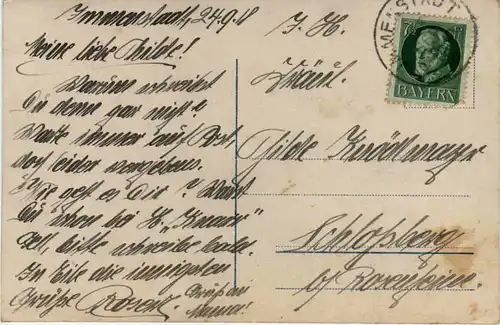 Immenstadt, 24.9.18
Meine liebe Thilde!
Warum schreibst
Du denn gar nicht?
Warte immer auf Post,
doch leider vergebens.
Wie geht es Dir? Warst
Du schon bei H. "Knaur"
bitte schreibe bald.
In Eile die innigsten
Grüße
Gruß an
Mama!
MENSTADT
7½ 7½
BAYERN
I. H.
Fräul.
Thilde Knödlmayr
Schloßberg
b/ Rosenheim.